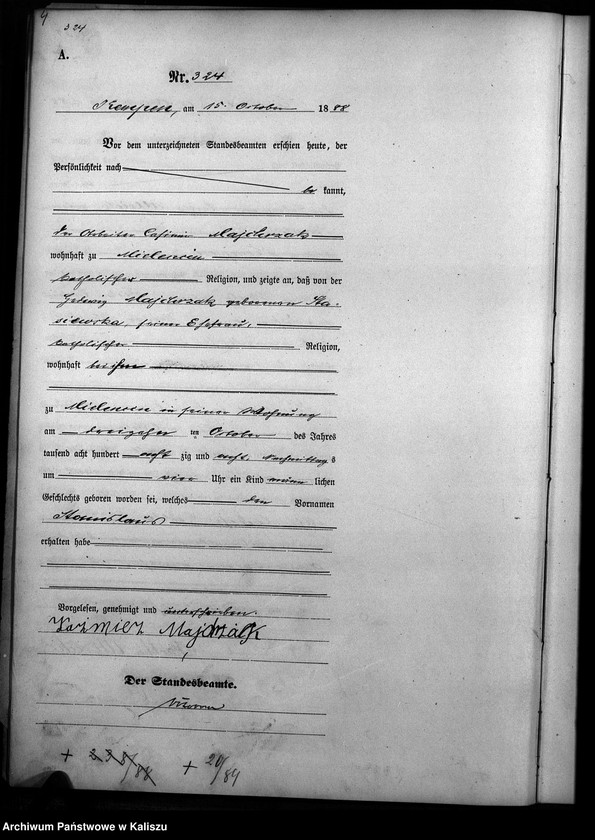 324
A.
Nr. 324
Kempen, am 15. October 1888
Vor dem unterzeichneten Standesbeamten erschien heute, der
Persönlichkeit nach
be kannt,
der Arbeiter Casimir Majchrzak
wohnhaft zu
katholischer Religion, und zeigte an, daß von der
Hedwig Majchrzak geborenen Sta-
siewska, seiner Ehefrau,
katholischer Religion,
wohnhaft bei ihm
zu in seiner Wohnung
am dreizehn ten October des Jahres
tausend acht hundert acht zig und acht Nachmittag s
um vier Uhr ein Kind männ lichen
Geschlechts geboren worden sei, welches den Vornamen
Stanislaus
erhalten habe
Vorgelesen, genehmigt und unterschrieben.
Kazimierz Majchrzak
Der Standesbeamte.
+ 238/88 + 20/89
Archiwum Państwowe w Kaliszu